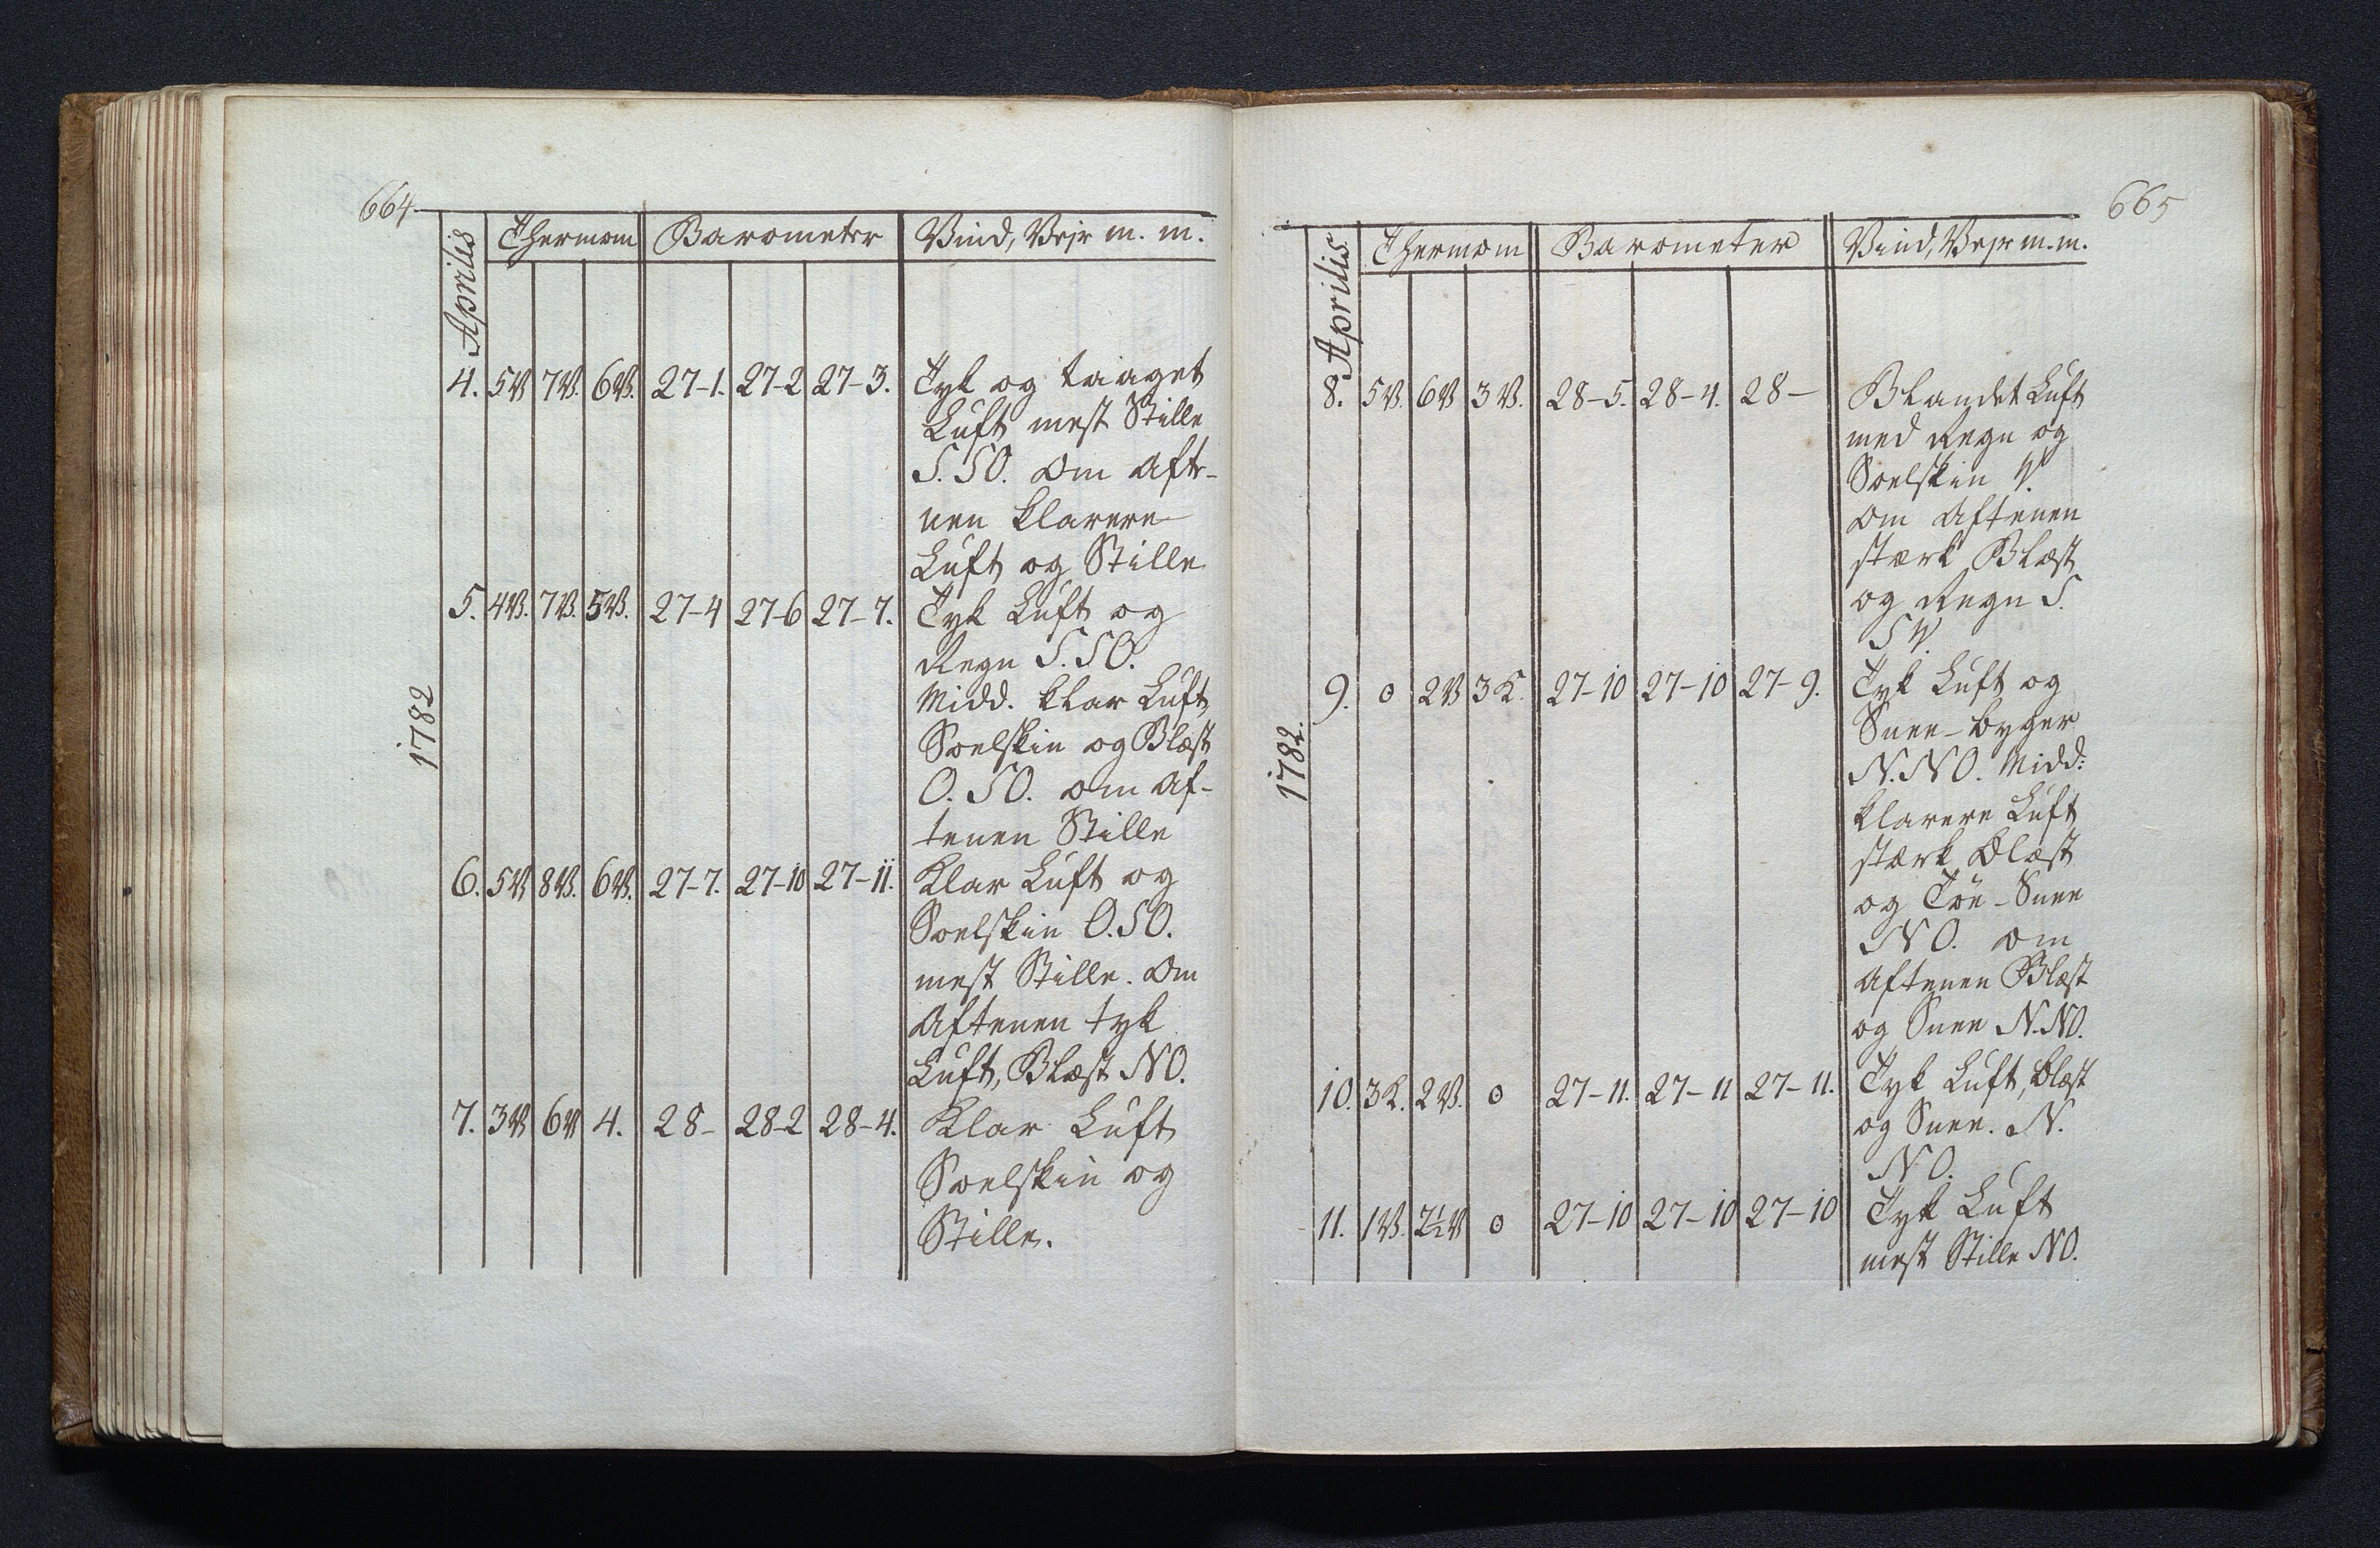 664
Aprilis
Thermom Barometer Vind, Vejr m. m.
4. 5V 7V. 6V. 27-1. 27-2 27-3. Tyk og taaget
Luft mest Stille
S. SO. Om Afte-
nen klarere
Luft og Stille
5. 4V. 7V. 5V. 27-4 27-6 27-7. Tyk Luft og
Regn S. SO.
Midd. klar Luft
Soelskin og Blæst
O. SO. om Af-
tenen Stille
6. 5V 8V. 6V. 27-7. 27-10 27-11. Klar Luft og
Soelskin O. SO.
mest Stille. Om
Aftenen tyk
Luft, Blæst NO.
7. 3V 6V 4. 28- 28-2 28-4. Klar Luft
Soelskin og
Stille.
1782
665
Aprilis
Thermom Barometer Vind, Vejr m. m.
8. 5V. 6V 3V. 28-5. 28-4. 28- Blandet Luft
med Regn og
Soelskin V.
Om Aftenen
stærk Blæst
og Regn S.
SV.
9. 0 2V 3K. 27-10 27-10 27-9. Tyk Luft og
Snee-byger
N. NO. Midd:
klarere Luft
stærk Blæst
og Tøe-Snee
NO. om
Aftenen Blæst
og Snee N. NO.
10. 3K. 2V. 0 27-11. 27-11 27-11. Tyk Luft, blæst
og Snee. N.
NO.
11. 1V. 2½V 0 27-10 27-10 27-10 Tyk Luft
mest Stille NO.
1782.